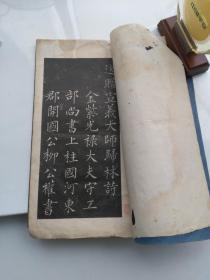 送聪上義大師歸林詩
金紫光禄大夫守工
部尚書上柱國河東
郡開國公柳公權書